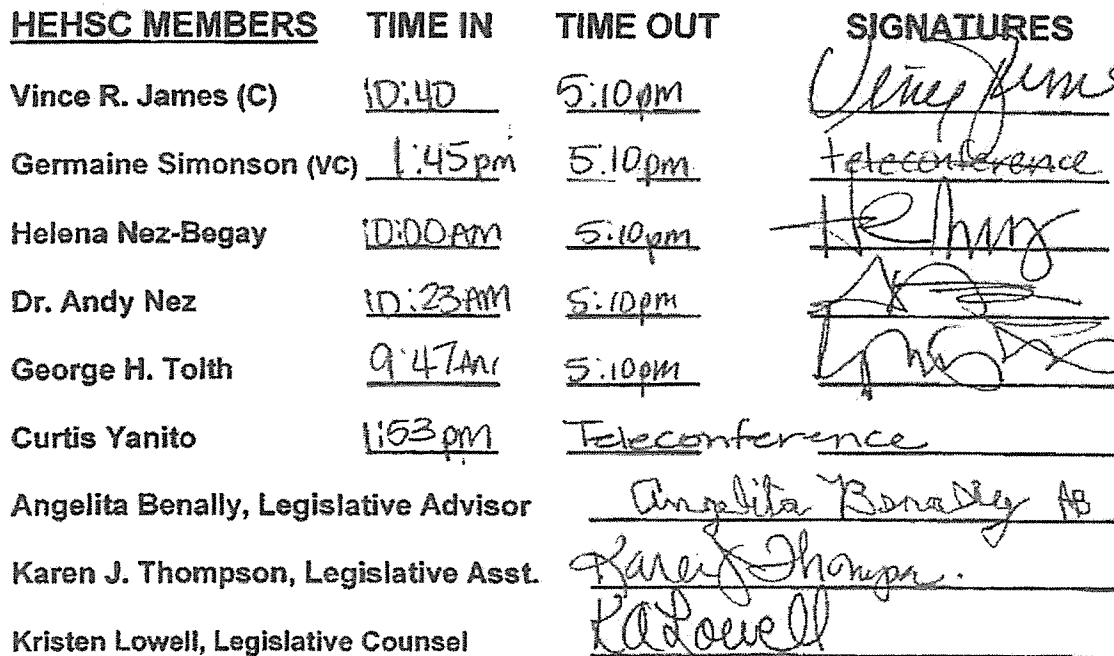 HEHSC MEMBERS TIME IN TIME OUT SIGNATURES
Vince R. James (C) 10:40 5:10pm
Germaine Simonson (VC) 1:45pm 5:10pm teleconference
Helena Nez-Begay 10:00AM 5:10pm
Dr. Andy Nez 10:23AM 5:10pm
George H. Tolth 9:47AM 5:10pm
Curtis Yanito 1:53pm Teleconference
Angelita Benally, Legislative Advisor Angelita Benally AB
Karen J. Thompson, Legislative Asst. Karen J Thompson
Kristen Lowell, Legislative Counsel KALowell